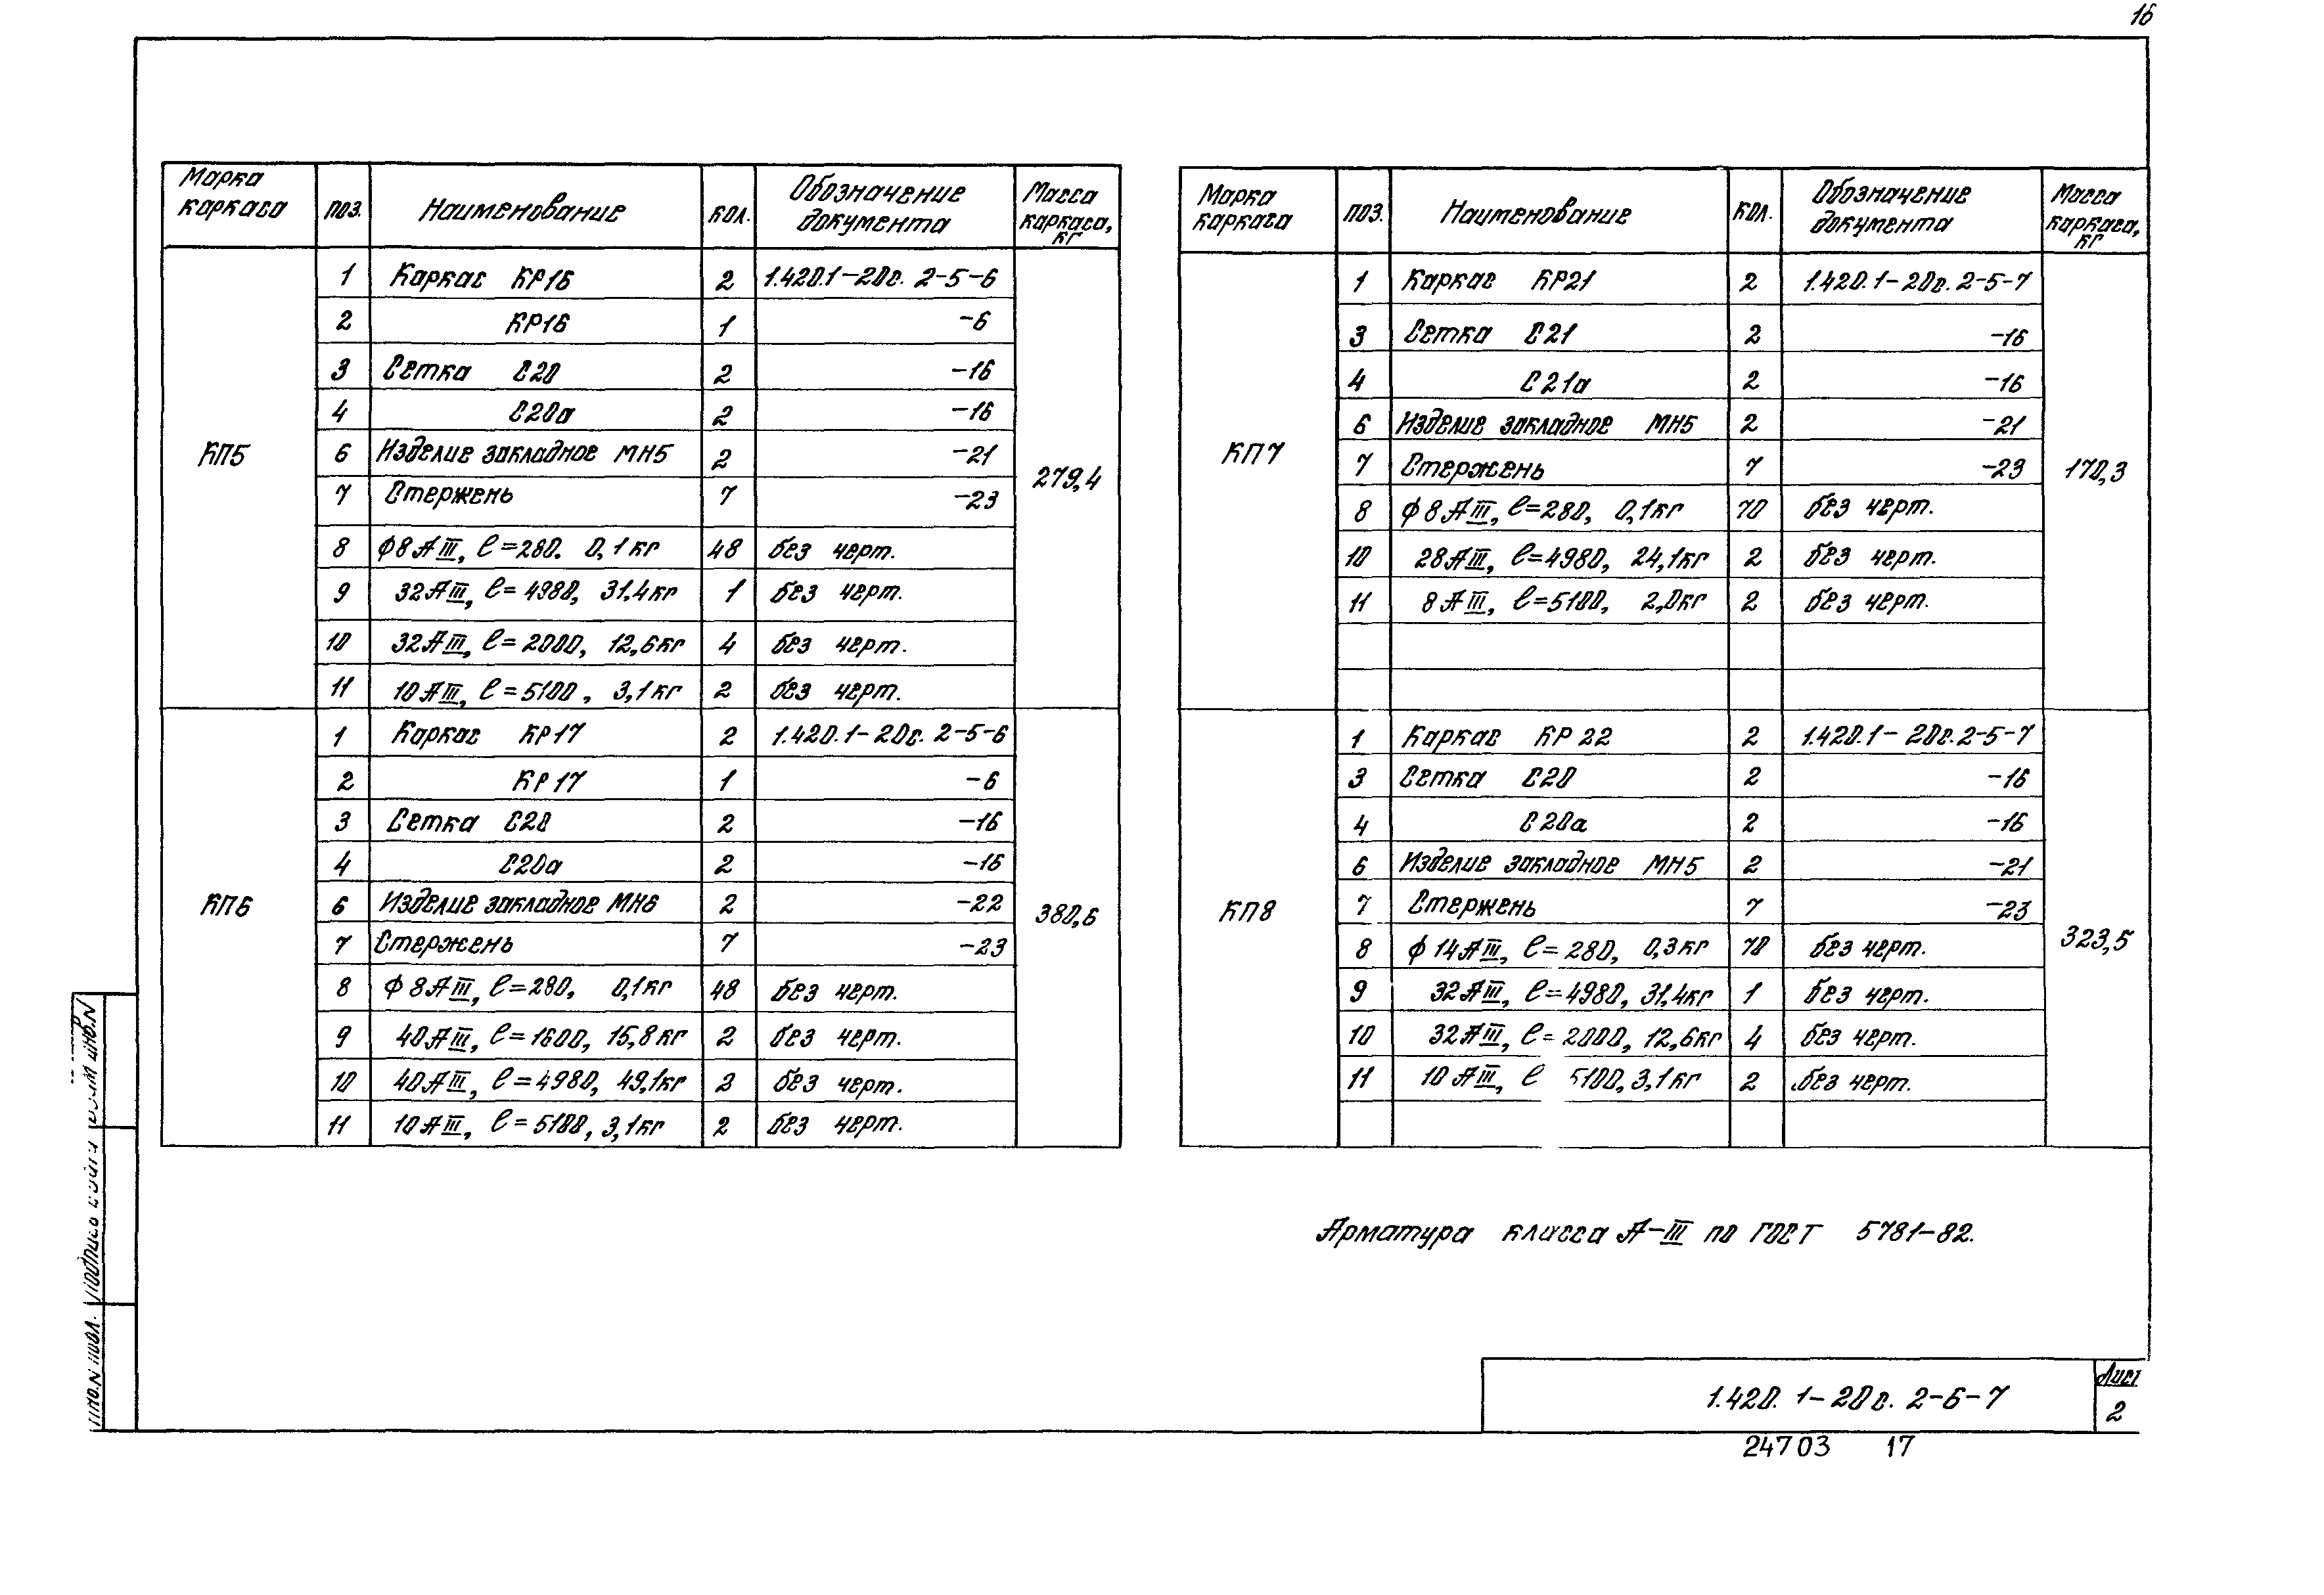 16
Марка каркаса поз. Наименование кол. Обозначение документа Масса каркаса, кг
КП5 279,4
1 Каркас КР16 2 1.420.1-20с. 2-5-6
2 КР16 1 -6
3 Сетка С20 2 -16
4 С20а 2 -16
6 Изделие закладное МН5 2 -21
7 Стержень 7 -23
8 ф8АIII, l=280. 0,1кг 48 без черт.
9 32АIII, l=4980, 31.4кг 1 без черт.
10 32АIII, l=2000, 12,6кг 4 без черт.
11 10АIII, l=5100, 3,1кг 2 без черт.
КП6 380,6
1 Каркас КР17 2 1.420.1-20с. 2-5-6
2 КР17 1 -6
3 Сетка С20 2 -16
4 С20а 2 -16
6 Изделие закладное МН6 2 -22
7 Стержень 7 -23
8 ф8АIII, l=280, 0,1кг 48 без черт.
9 40АIII, l=1600, 15,8кг 2 без черт.
10 40АIII, l=4980, 49,1кг 2 без черт.
11 10АIII, l=5100, 3,1кг 2 без черт.
Марка каркаса поз. Наименование кол. Обозначение документа Масса каркаса, кг
КП7 170,3
1 Каркас КР21 2 1.420.1-20с. 2-5-7
3 Сетка С21 2 -16
4 С21а 2 -16
6 Изделие закладное МН5 2 -21
7 Стержень 7 -23
8 ф8АIII, l=280, 0,1кг 70 без черт.
10 28АIII, l=4980, 24,1кг 2 без черт.
11 8АIII, l=5100, 2,0кг 2 без черт.
КП8 323,5
1 Каркас КР22 2 1.420.1-20с. 2-5-7
3 Сетка С20 2 -16
4 С20а 2 -16
6 Изделие закладное МН5 2 -21
7 Стержень 7 -23
8 ф14АIII, l=280, 0,3кг 70 без черт.
9 32АIII, l=4980, 31,4кг 1 без черт.
10 32АIII, l=2000, 12,6кг 4 без черт.
11 10АIII, l 5100, 3,1кг 2 без черт.
Арматура класса А-III по ГОСТ 5781-82.
1.420.1-20с. 2-6-7
Лист
2
24703 17
Инв.N подл.
Подпись и дата
Взам инв.N